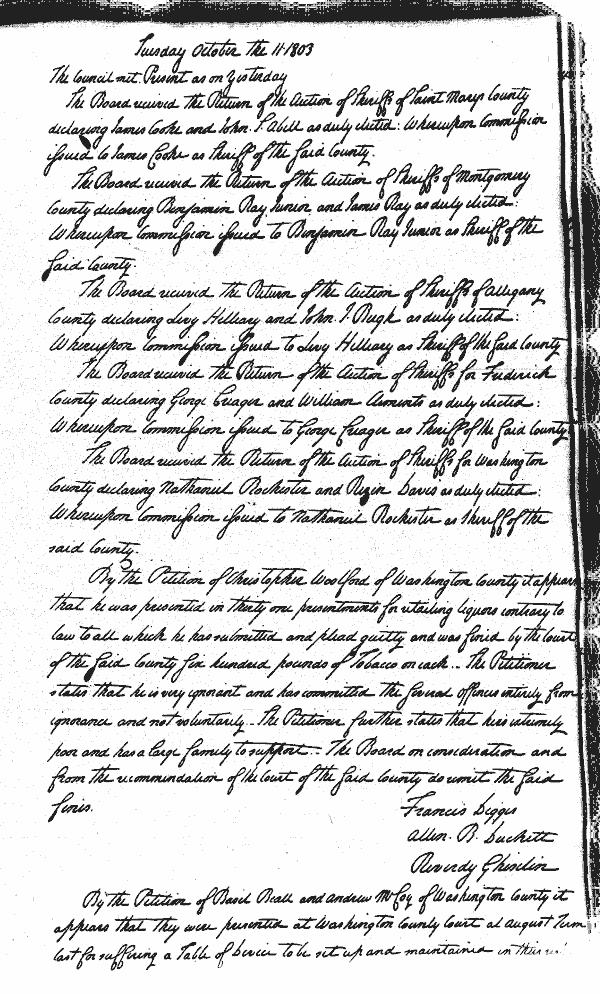 Tuesday October the 11 1803
The Council met Present as on Yesterday
The Board received the Return of the Election of Sheriffs of Saint Marys County
declaring James Cooke and John F. Abell as duly elected: Whereupon Commission
issued to James Cooke as Sheriff of the said County.
The Board received the Return of the Election of Sheriffs of Montgomery
County declaring Benjamin Ray Junior and James Ray as duly elected:
Whereupon Commission issued to Benjamin Ray Junior as Sheriff of the
said County.
The Board received the Return of the Election of Sheriffs of Allegany
County declaring Levy Hilleary and John I. Pugh as duly elected:
Whereupon Commission issued to Levy Hilleary as Sheriff of the said County
The Board received the Return of the Election of Sheriffs for Frederick
County declaring George Creager and William as duly elected:
Whereupon Commission issued to George Creager as Sheriff of the said County
The Board received the Return of the Election of Sheriffs for Washington
County declaring Nathaniel Rochester and Rezin Davis as duly elected:
Whereupon Commission issued to Nathaniel Rochester as Sheriff of the
said County.
By the Petition of Christopher Woolford of Washington County it appears
that he was presented in thirty one presentments for retailing liquors contrary to
law to all which he has submitted and plead guilty and was fined by the Court
of the said County six hundred pounds of Tobacco on each.. The Petitioner
states that he is very ignorant and has committed the several offences entirely from
ignorance and not voluntarily.. The Petitioner further states that he is extremely
poor and has a large family to support.. The Board on consideration and
from the recommendation of the Court of the said County do remit the said
fines.
Francis Digges
Allen. B. Duckett
Reverdy Ghiselin
By the Petition of Basil Beall and Andrew McCoy of Washington County it
appears that they were presented at Washington County Court at August Term
last for suffering a Table of Device to be set up and maintained in their